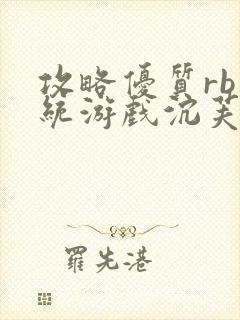 攻略優質rb
統游戲沉芙
羅先港